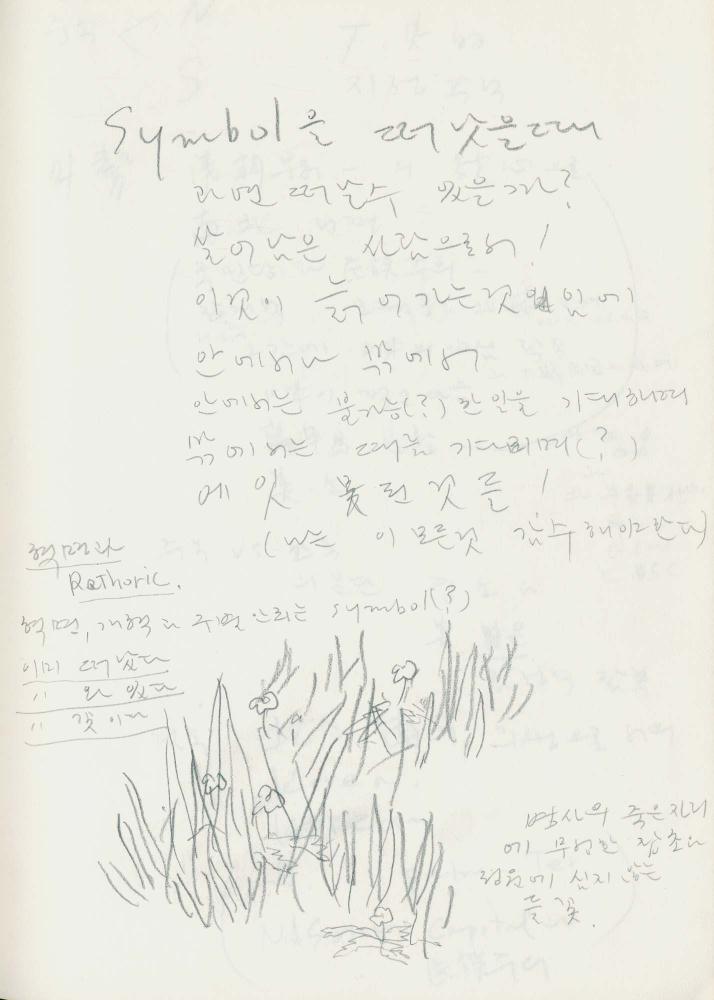 Symbol을 떠낫을때
과연 떠날수 있을까?
살어남은 사람으로서!
인것이 늙어가는것 임에
안에서나 밖에서
안에서는 불가능(?)한 일을 기대하며
밖에서는 때를 기다리며(?)
에잇 못된것들!
(나는 이 모든것 감수해야란다)
혁명과
Rethoric.
혁명, 개혁과 주변 symbol(?)
이미 떠났다
〃 와 있다
〃 꽃이다
병사의 죽은자리
에 무성한 잡초와
정원에 심지 않는
들꽃.